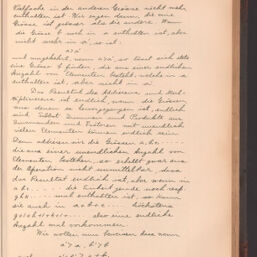 Vielfache in der anderen Grösse nicht mehr
enthalten ist. Wir sagen dann, die eine
Grösse ist grösser als die andere. Wenn
die Grösse b auch in a enthalten ist, aber
nicht mehr in a', so ist:
a>a'
und umgekehrt, wenn a>a', so lässt sich stets
eine Grösse b finden, die aus einer endlichen
Anzahl von Elementen besteht, welche in a
enthalten ist, aber nicht in a'.
Das Resultat des Addierens und Mul-
tiplizierens ist endlich, wenn die Grössen
aus denen es hervorgegangen ist, endlich
sind. Selbst Summen und Produkte aus
Summanden und Faktoren mit unendlich
vielen Elementen können endlich sein.
Denn addieren wir die Grössen a, b, c, ...
die aus einer unendlichen Anzahl von
Elementen bestehen, so erhellt zwar aus
der Operation nicht unmittelbar, dass
das Resultat endlich ist, aber wenn in
a b c ... die Einheit gerade noch resp.
g h ... mal enthalten ist, so kann
sie auch in a+b+c+... höchstens
also eine endliche
Anzahl mal vorkommen.
Wir wollen nun beweisen dass wenn
a'>a, b'>b